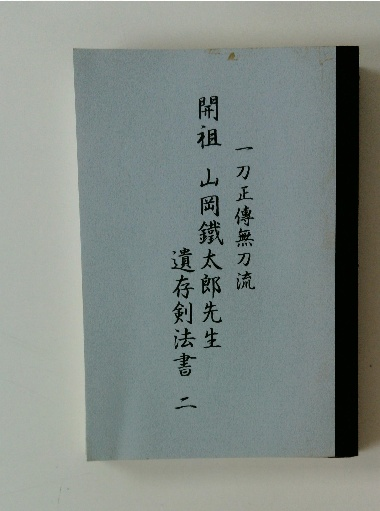 一刀正傳無刀流
開祖 山岡鐵太郎先生
遺存剣法書 二